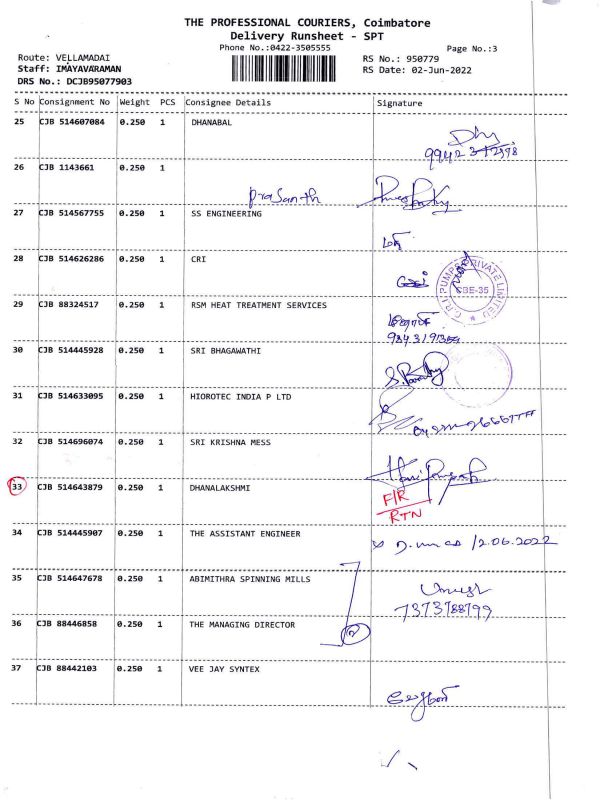 THE PROFESSIONAL COURIERS, Coimbatore
Delivery Runsheet - SPT
Phone No.:0422-3505555
Page No.:3
Route: VELLAMADAI
RS No.: 950779
Staff: IMAYAVARAMAN
RS Date: 02-Jun-2022
DRS No.: DCJB95077903
S No Consignment No Weight PCS Consignee Details Signature
25 CJB 514607084 0.250 1 DHANABAL
26 CJB 1143661 0.250 1
Prasanth
27 CJB 514567755 0.250 1 SS ENGINEERING
28 CJB 514626286 0.250 1 CRI
C.R.I. PUMPS PRIVATE LIMITED
CBE-35
29 CJB 88324517 0.250 1 RSM HEAT TREATMENT SERVICES
30 CJB 514445928 0.250 1 SRI BHAGAWATHI
31 CJB 514633095 0.250 1 HIOROTEC INDIA P LTD
32 CJB 514696074 0.250 1 SRI KRISHNA MESS
33 CJB 514643879 0.250 1 DHANALAKSHMI
F/R
RTN
34 CJB 514445907 0.250 1 THE ASSISTANT ENGINEER
2.06.2022
35 CJB 514647678 0.250 1 ABIMITHRA SPINNING MILLS
7373788799
36 CJB 88446858 0.250 1 THE MANAGING DIRECTOR
37 CJB 88442103 0.250 1 VEE JAY SYNTEX